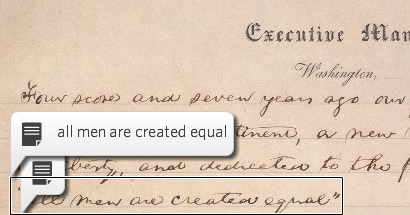 Executive Man
Washington,
Four score and seven years ago our
all men are created equal
tinent, a new
berty, and dedicated to the
ll men are created equal"